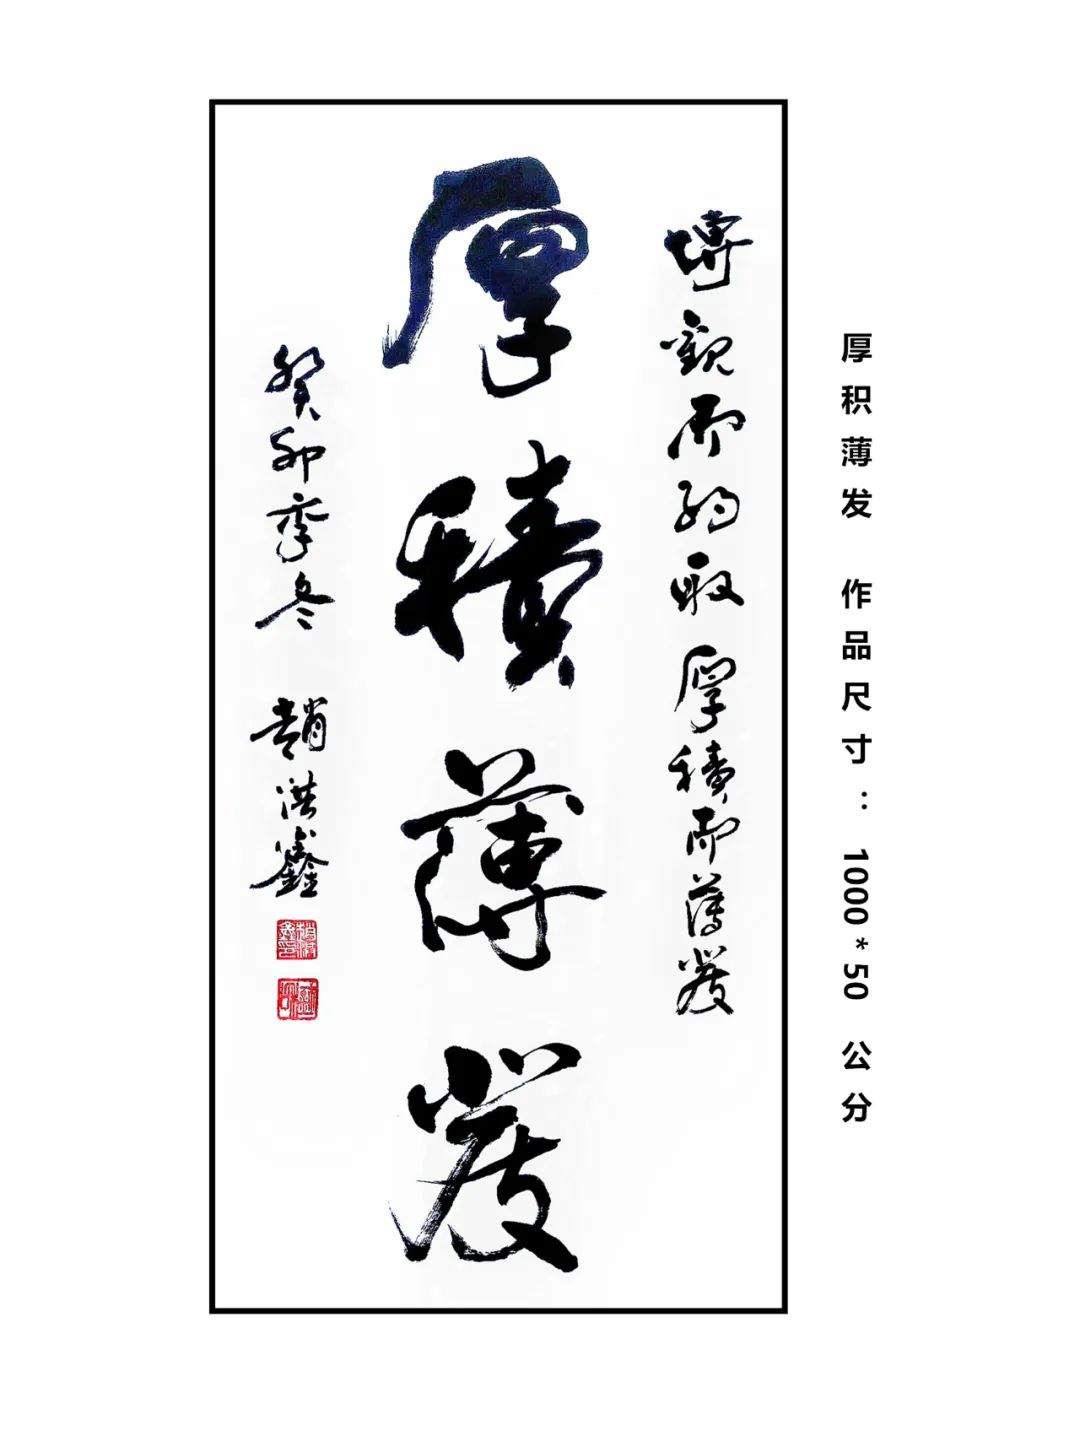 厚积薄发 作品尺寸：1000*50 公分
博觀而約取厚積而薄發
厚積薄發
癸卯季冬 趙洪鑫